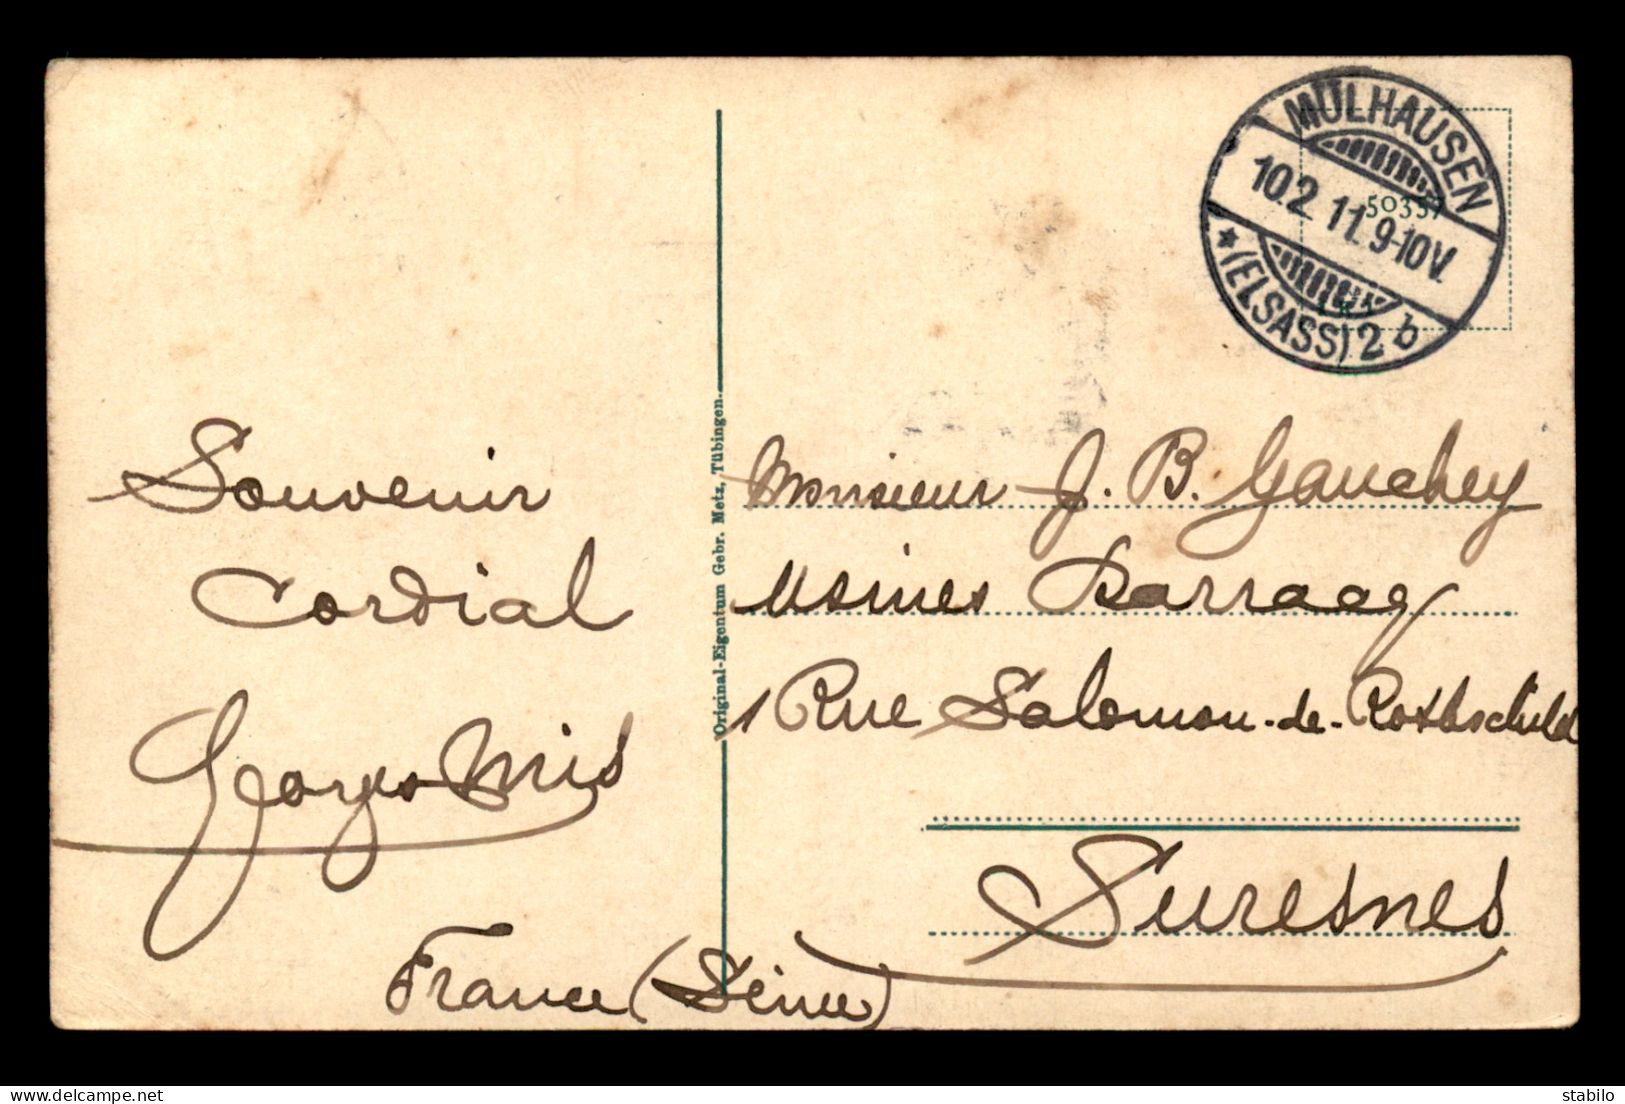 MÜLHAUSEN
10.2.11.9-10V.
* (ELSASS) 2 b
5035
Original-Eigentum Gebr. Metz, Tübingen.
Souvenir
Cordial
Georges
Monsieur J. B. Gauchey
Usines Barraag
1 Rue Salomon-de-Rothschild
Suresnes
France (Seine)
stabilo